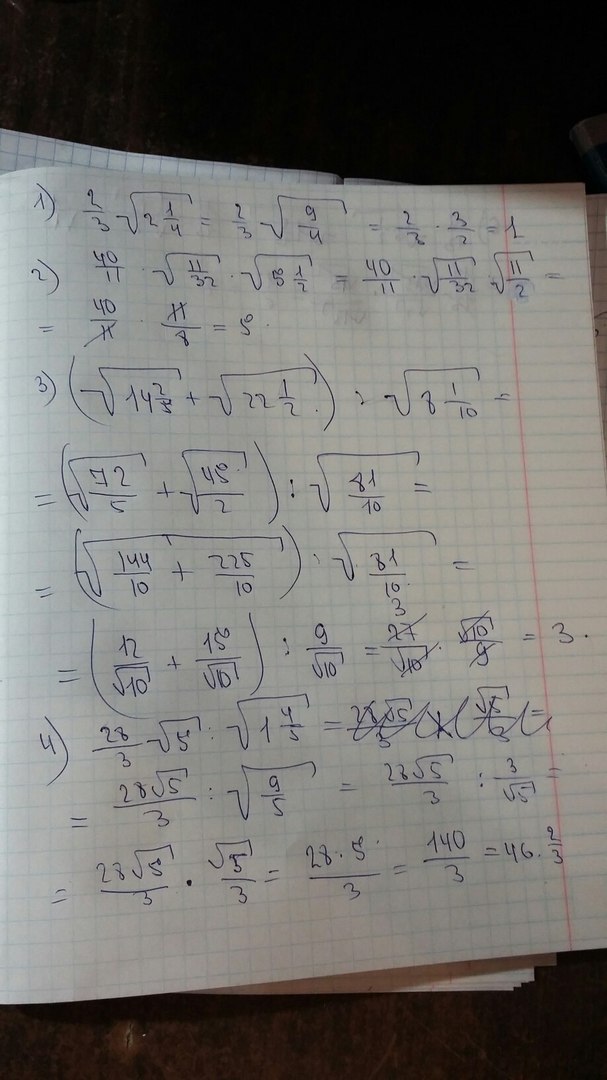 1) 2/3 √(2 1/4) = 2/3 √(9/4) = 2/3 · 3/2 = 1
2) 40/11 · √(11/32) · √(5 1/2) = 40/11 · √(11/32) √(11/2) =
= 40/11 · 11/8 = 5.
3) (√(14 2/5) + √(22 1/2)) : √(8 1/10) =
= (√(72/5) + √(45/2)) : √(81/10) =
= (√(144/10 + 225/10)) : √(81/10) =
= (12/√10 + 15/√10) : 9/√10 = 27/√10 · √10/9 = 3.
4) 28/3 √5 : √(1 4/5) =
= 28√5/3 : √(9/5) = 28√5/3 : 3/√5 =
= 28√5/3 · √5/3 = 28·5/3 = 140/3 = 46 · 2/3